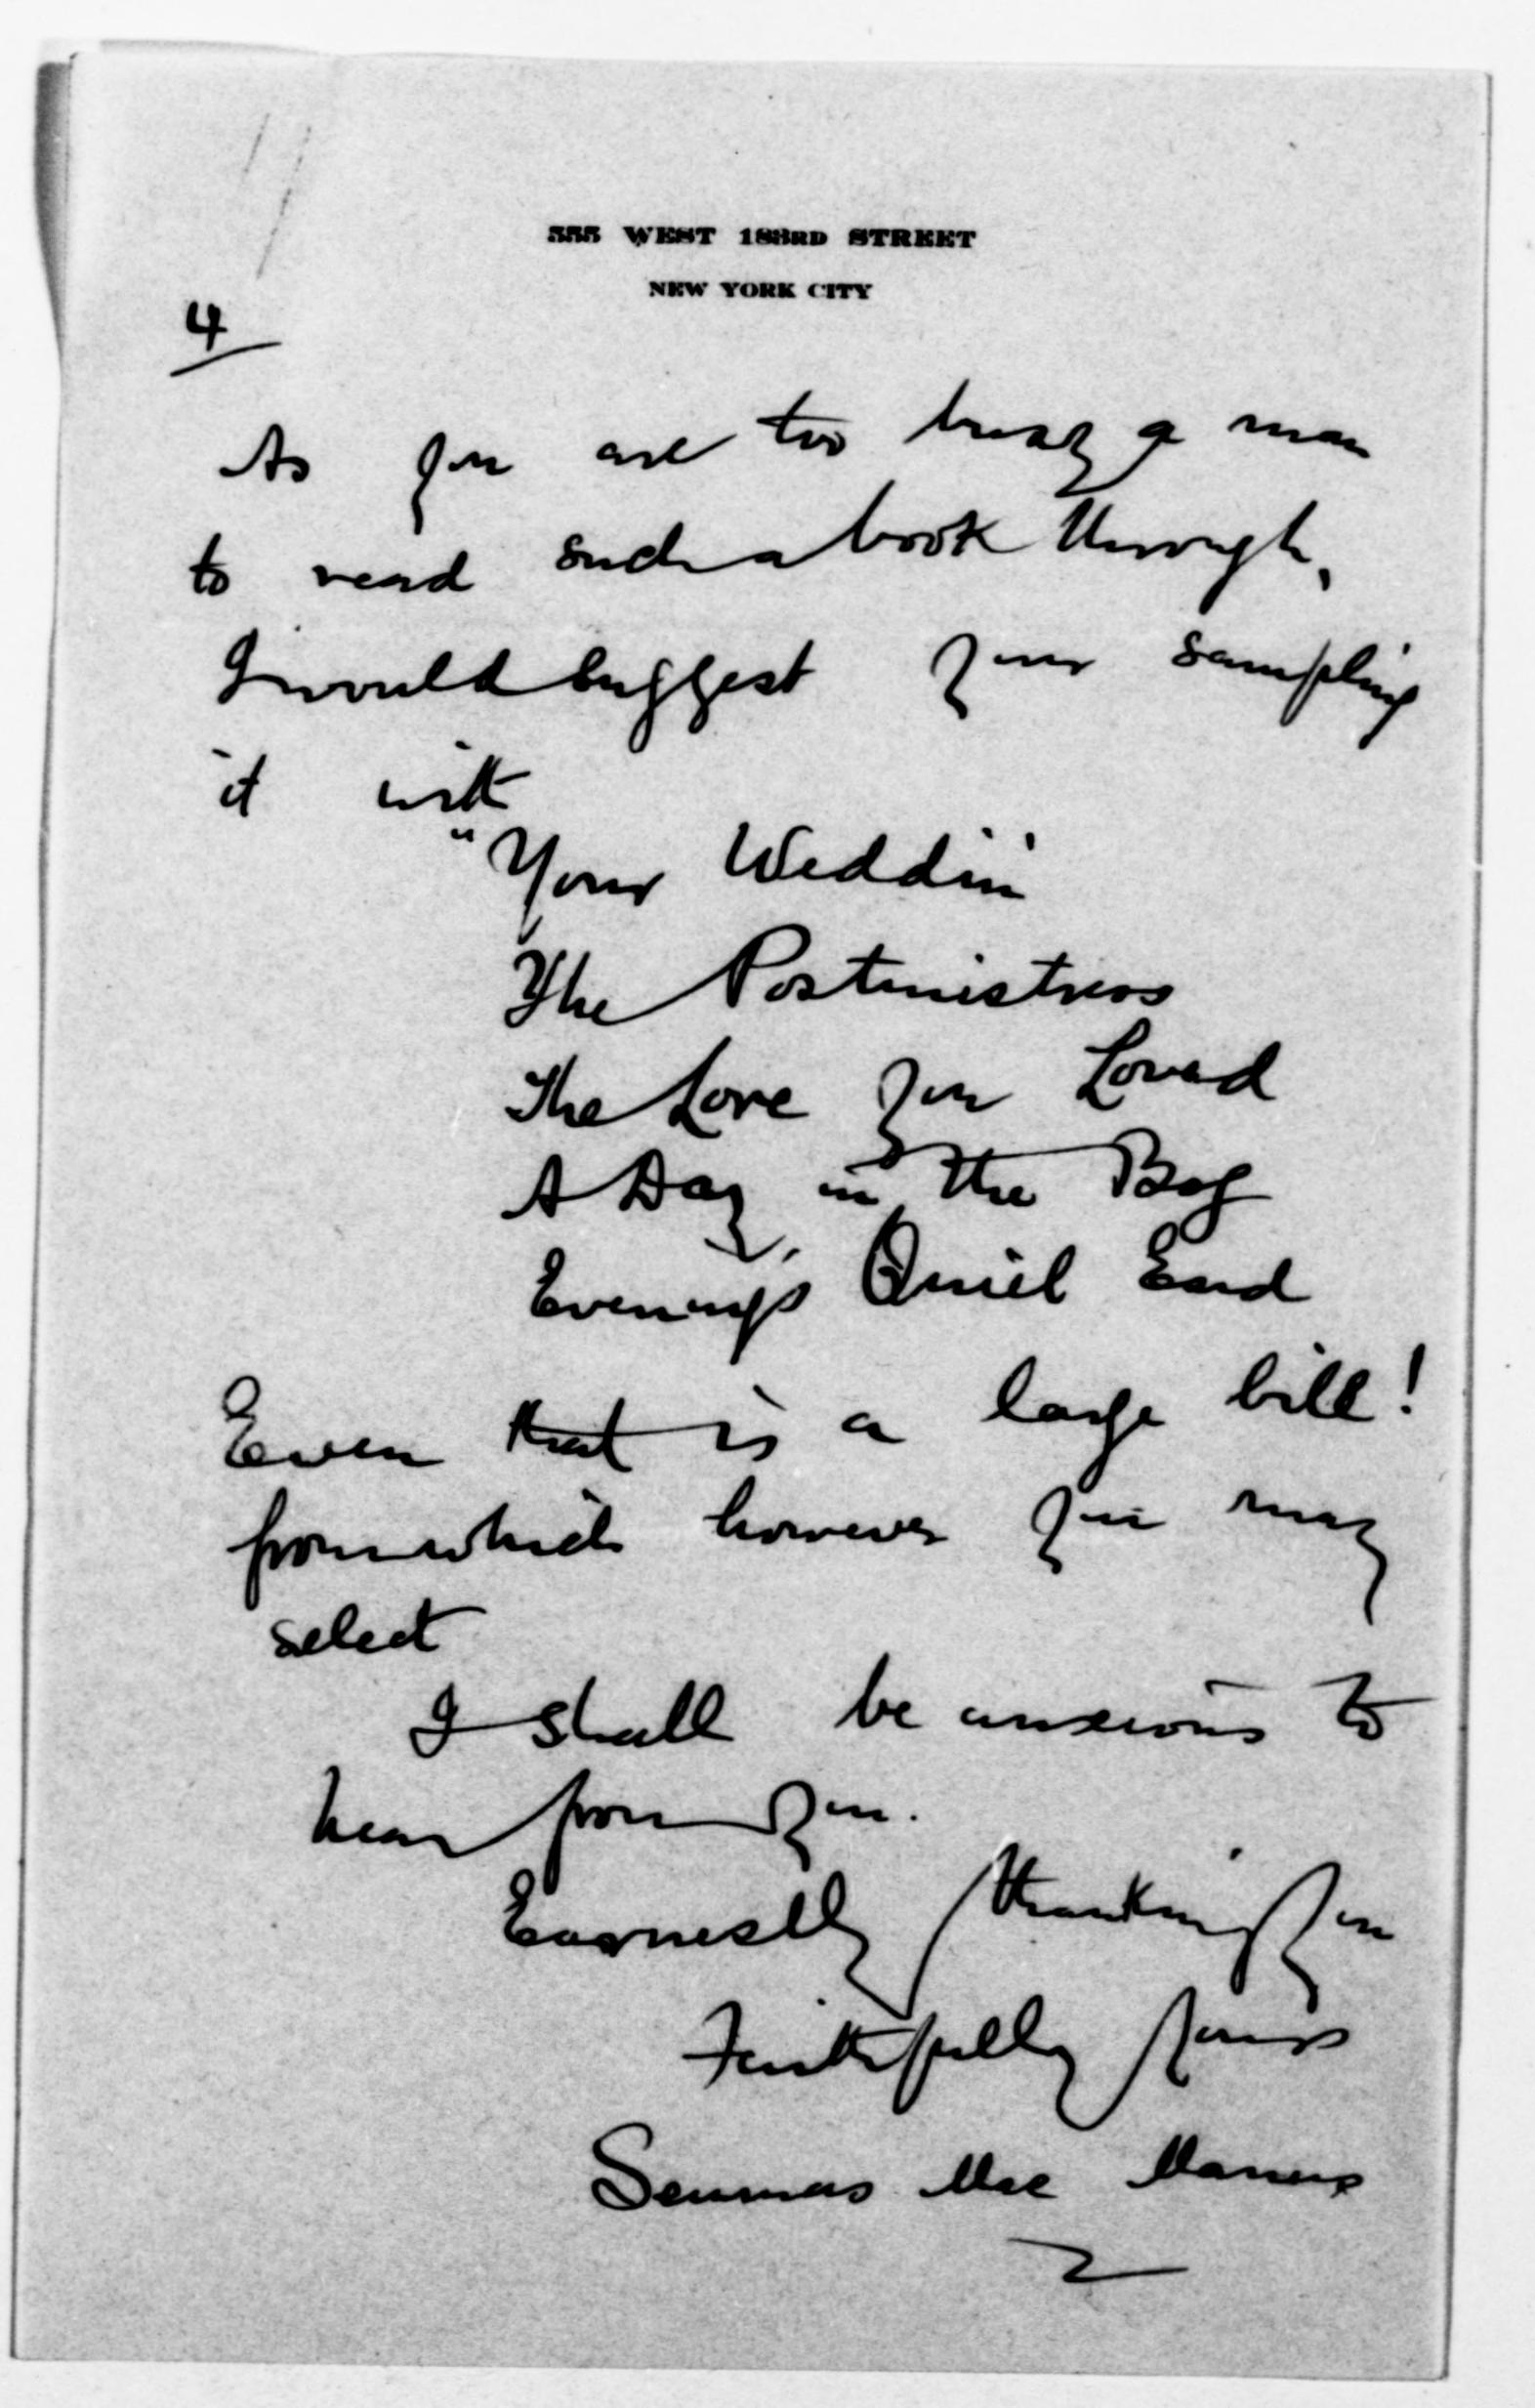 555 WEST 183RD STREET
NEW YORK CITY
4
As you are too busy a man
to read such a book through,
I would suggest your sampling
it with
"Your Weddin'
The Postmistress
The Love you Loved
A Day in the Bog
Evening's Quiet End
Even that is a large bill!
from which however you may
select
I shall be anxious to
hear from you.
Earnestly thanking you
Faithfully yours
Seumas Mac Manus